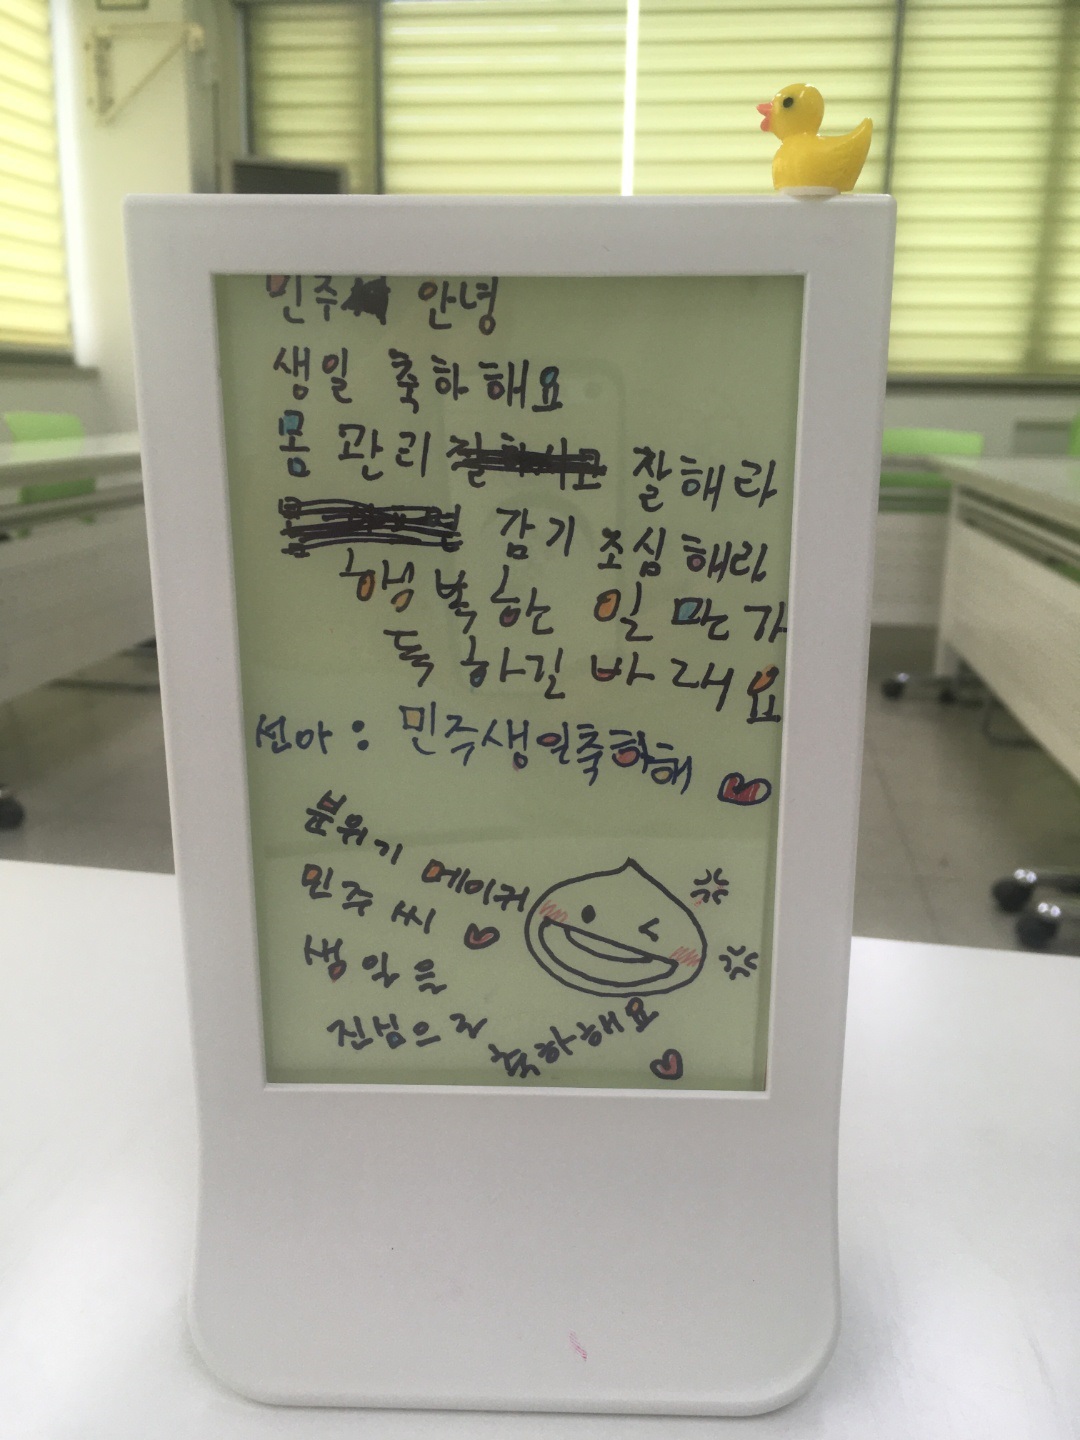 민주 안녕
생일 축하해요
몸 관리 잘해라
감기 조심해라
행복한 일만가
득하길 바래요
선아 : 민주생일축하해
분위기 메이커
민주씨
생일을
진심으로 축하해요